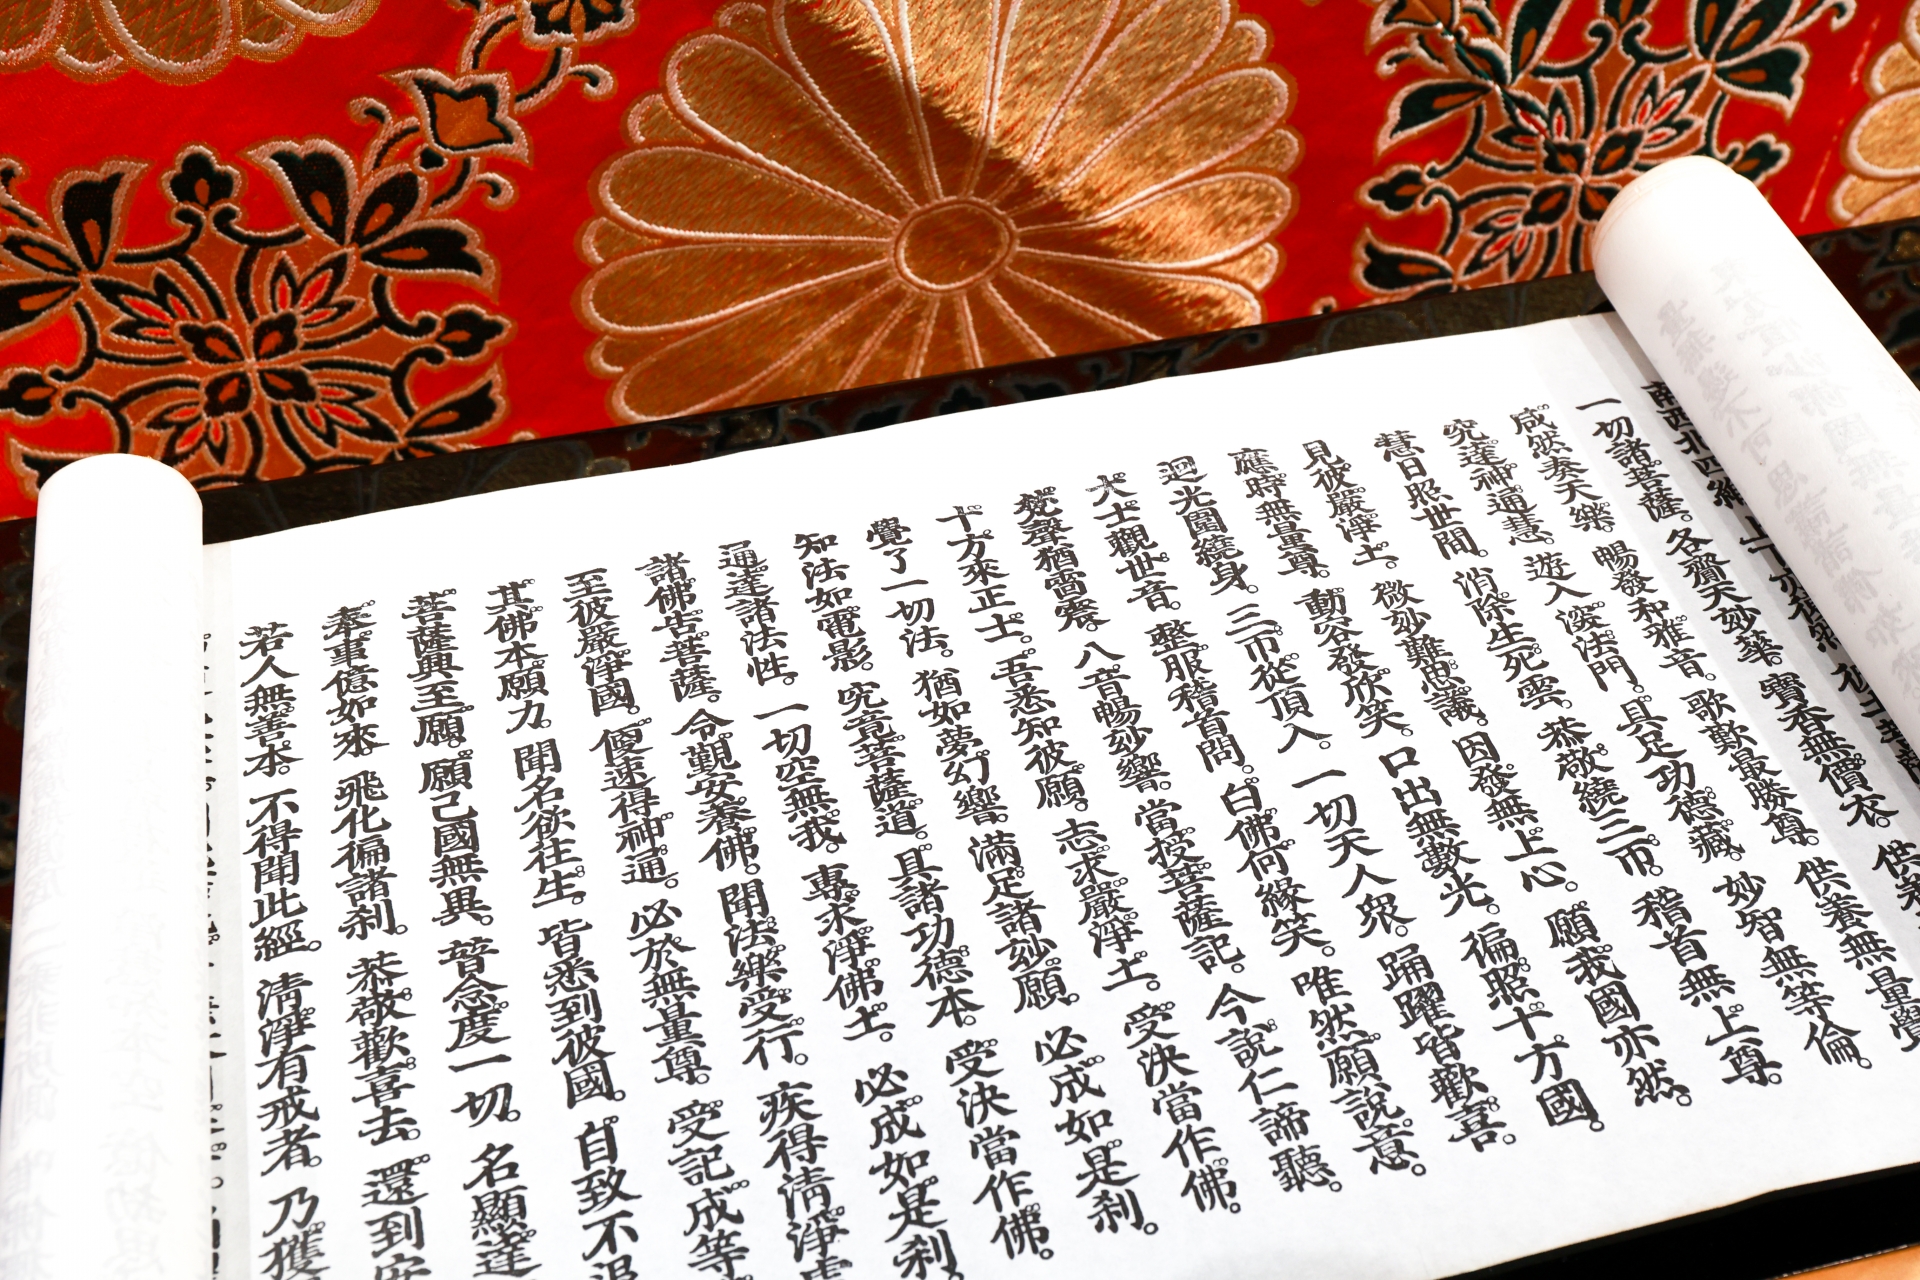 南西北四維 上下亦復然
一切諸菩薩。各齎天妙華。寶香無價衣。供養
咸然奏天樂。暢發和雅音。歌歎最勝尊。供養無量覺
究達神通慧。遊入深法門。具足功德藏。妙智無等倫。
慧日照世間。消除生死雲。恭敬繞三帀。稽首無上尊。
見彼嚴淨土。微妙難思議。因發無上心。願我國亦然。
應時無量尊。動容發欣笑。口出無數光。徧照十方國。
迴光圍繞身。三帀從頂入。一切天人眾。踊躍皆歡喜。
大士觀世音。整服稽首問。白佛何緣笑。唯然願說意。
梵聲猶雷震。八音暢妙響。當授菩薩記。今說仁諦聽。
十方來正士。吾悉知彼願。志求嚴淨土。受決當作佛。
覺了一切法。猶如夢幻響。滿足諸妙願。必成如是剎。
知法如電影。究竟菩薩道。具諸功德本。受決當作佛。
通達諸法性。一切空無我。專求淨佛土。必成如是剎
諸佛告菩薩。令覲安養佛。聞法樂受行。疾得清淨處
至彼嚴淨國。便速得神通。必於無量尊。受記成等
其佛本願力。聞名欲往生。皆悉到彼國。自致不退
菩薩興至願。願己國無異。普念度一切。名顯達
奉事億如來 飛化徧諸剎。恭敬歡喜去。還到安
若人無善本。不得聞此經。清淨有戒者。乃獲